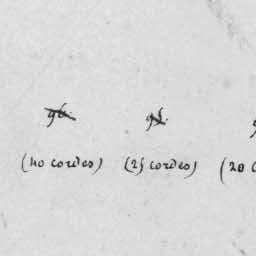 (40 cordes) (25 cordes) (20 c